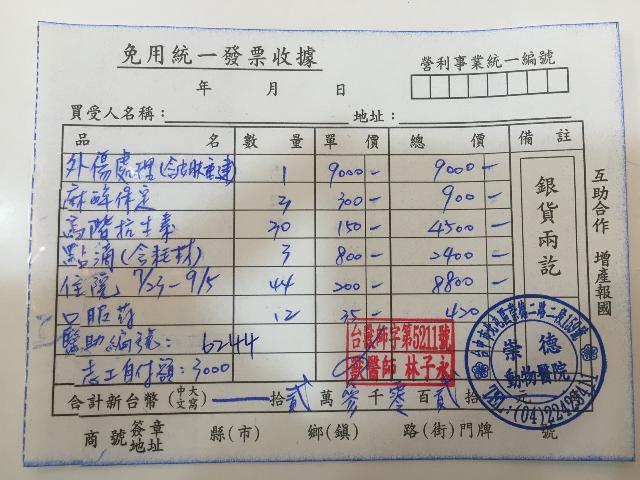 免用統一發票收據
營利事業統一編號
年 月 日
買受人名稱： 地址：
品 名 數 量 單 價 總 價 備 註
外傷處理(含皮膚重建) 1 9000- 9000-
麻醉保定 3 300- 900-
高階抗生素 30 150- 4500-
點滴(含耗材) 3 800- 2400-
住院 7/23-9/5 44 200- 8800-
口服葯 12 35- 420-
醫助編號: 6244
志工自付額: 3000
銀貨兩訖
互助合作 增產報國
字第5211號
獸醫師 林子永
崇德
動物醫院
合計新台幣(中文大寫) 拾貳萬零千零百貳拾 元
商號簽章地址 縣(市) 鄉(鎮) 路(街)門牌 號